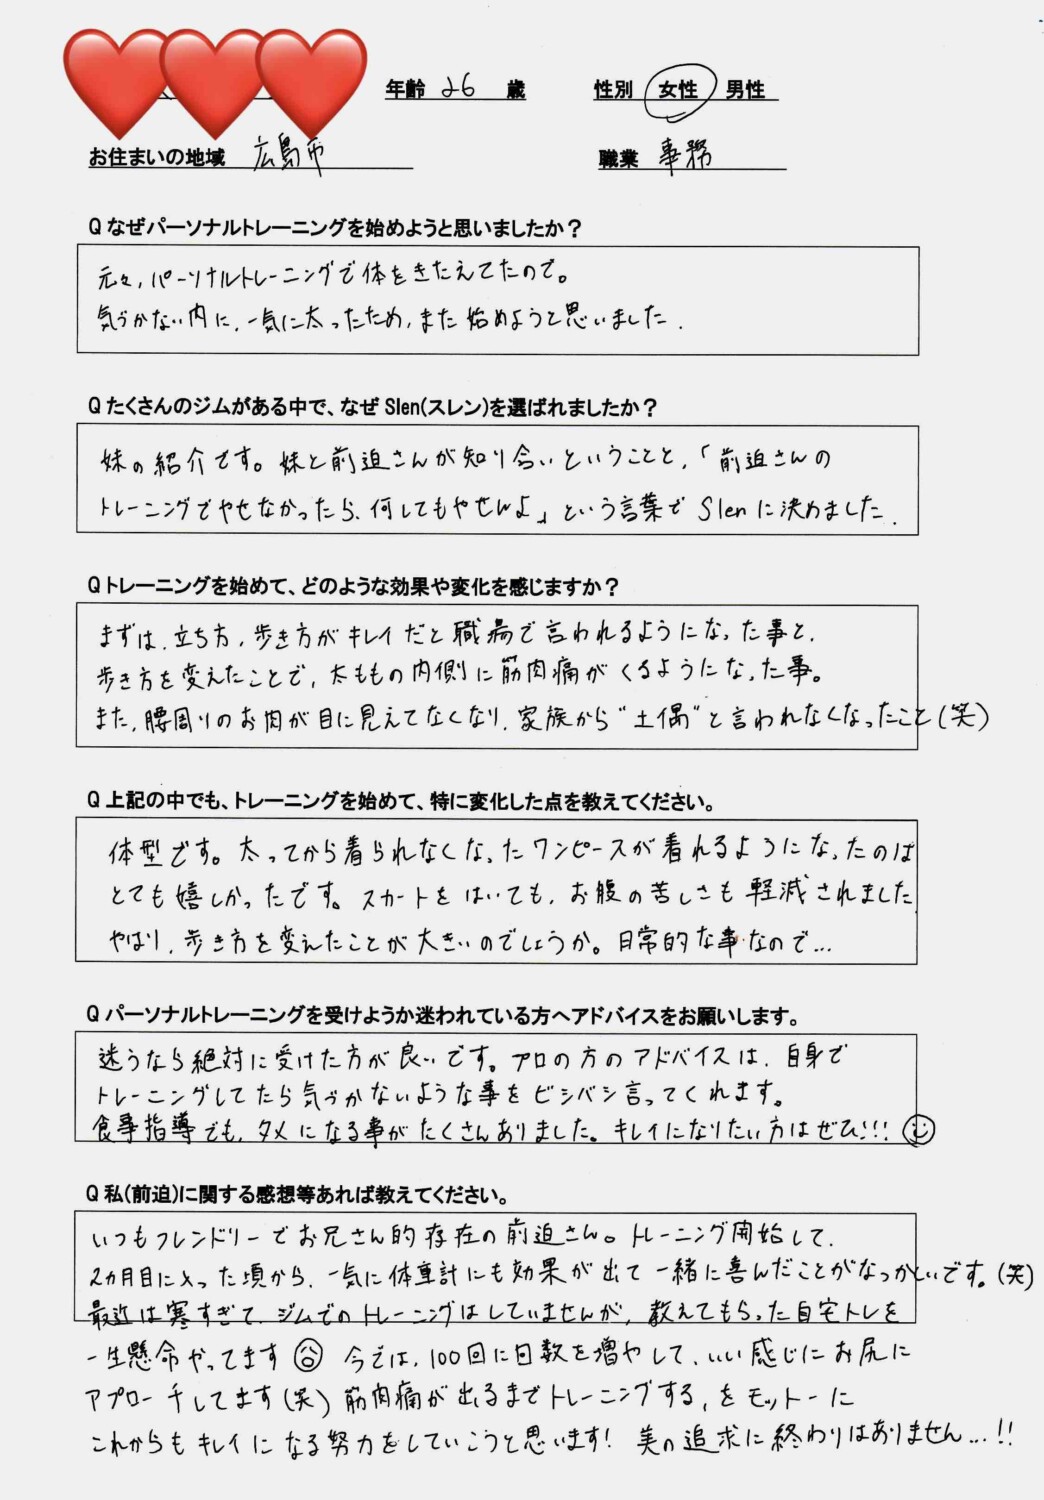 年齢 26 歳 性別 女性 男性
お住まいの地域 広島市 職業 事務
Q なぜパーソナルトレーニングを始めようと思いましたか？
元々、パーソナルトレーニングで体をきたえてたので。
気づかない内に、一気に太ったため、また始めようと思いました.
Q たくさんのジムがある中で、なぜ Slen(スレン)を選ばれましたか？
妹の紹介です。妹と前迫さんが知り合いということと、「前迫さんの
トレーニングでやせなかったら、何してもやせんよ」という言葉で Slenに決めました.
Q トレーニングを始めて、どのような効果や変化を感じますか？
まずは、立ち方、歩き方がキレイだと職場で言われるようになった事と、
歩き方を変えたことで、太ももの内側に筋肉痛がくるようになった事。
また、腰周りのお肉が目に見えてなくなり、家族から"土偶"と言われなくなったこと(笑)
Q 上記の中でも、トレーニングを始めて、特に変化した点を教えてください。
体型です。太ってから着られなくなったワンピースが着れるようになったのは
とても嬉しかったです。スカートをはいても、お腹の苦しさも軽減されました
やはり、歩き方を変えたことが大きいのでしょうか。日常的な事なので…
Q パーソナルトレーニングを受けようか迷われている方へアドバイスをお願いします。
迷うなら絶対に受けた方が良いです。プロの方のアドバイスは、自身で
トレーニングしてたら気づかないような事をビシバシ言ってくれます。
食事指導でも、タメになる事がたくさんありました。キレイになりたい方はぜひ!!!
Q 私(前迫)に関する感想等あれば教えてください。
いつもフレンドリーでお兄さん的存在の前迫さん。トレーニング開始して、
2カ月目に入った頃から、一気に体重計にも効果が出て一緒に喜んだことがなつかしいです。(笑)
最近は寒すぎて、ジムでのトレーニングはしていませんが、教えてもらった自宅トレを
一生懸命やってます 今では、100回に回数を増やして、いい感じにお尻に
アプローチしてます(笑) 筋肉痛が出るまでトレーニングする、をモットーに
これからもキレイになる努力をしていこうと思います! 美の追求に終わりはありません…!!